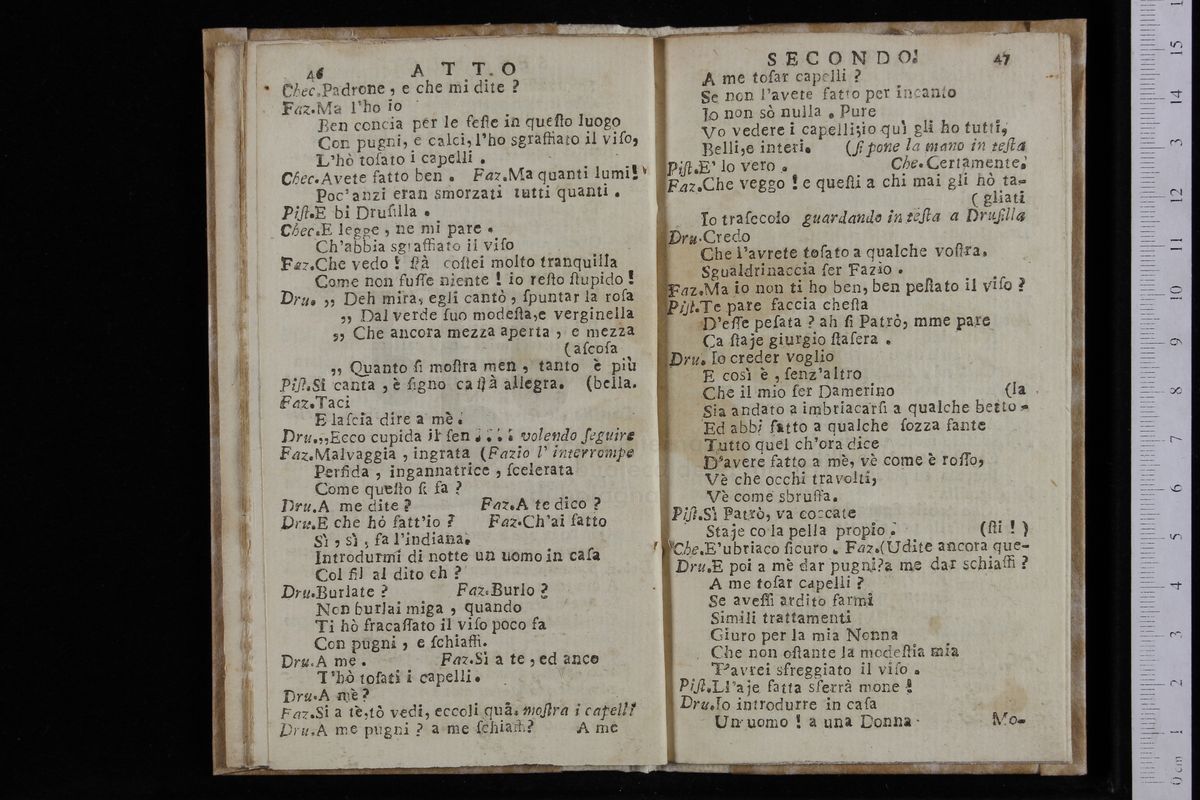 46 ATTO
Chec.Padrone , e che mi dite ?
Faz.Ma l'ho io
Ben concia per le feſte in queſto luogo
Con pugni, e calci, l'ho sgraffiato il viſo,
L'hò toſato i capelli .
Chec.Avete fatto ben . Faz.Ma quanti lumi!
Poc'anzi eran smorzati tutti quanti .
Piſt.E bi Druſilla .
Chec.E legge , ne mi pare .
Ch'abbia sgraffiato il viſo
Faz.Che vedo ! ſtà coſtei molto tranquilla
Come non fuſſe niente ! io reſto ſtupido !
Dru. ,, Deh mira, egli cantò , ſpuntar la roſa
,, Dal verde ſuo modeſta,e verginella
,, Che ancora mezza aperta , e mezza
(aſcoſa
,, Quanto ſi moſtra men , tanto è più
Piſt.Si canta , è ſigno ca ſtà allegra. (bella.
Faz.Taci
E laſcia dire a mè .
Dru.,,Ecco cupida il ſen . . . . volendo ſeguire
Faz.Malvaggia , ingrata (Fazio l' interrompe
Perfida , ingannatrice , ſcelerata
Come queſto ſi fa ?
Dru.A me dite ? Faz.A te dico ?
Dru.E che hò fatt'io ? Faz.Ch'ai fatto
Sì , sì , fa l'indiana.
Introdurmi di notte un uomo in caſa
Col fil al dito eh ?
Dru.Burlate ? Faz.Burlo ?
Non burlai miga , quando
Ti hò fracaſſato il viſo poco fa
Con pugni , e ſchiaffi.
Dru.A me . Faz.Sì a te , ed anco
T'hò toſati i capelli.
Dru.A mè ?
Faz.Si a te,tò vedi, eccoli quà. moſtra i capelli
Dru.A me pugni ? a me ſchiaffi? A me
SECONDO. 47
A me toſar capelli ?
Se non l'avete fatto per incanto
Io non sò nulla . Pure
Vo vedere i capelli;io quì gli ho tutti,
Belli,e interi. (ſi pone la mano in teſta
Piſt.E' lo vero . Che.Certamente.
Faz.Che veggo ! e queſti a chi mai gli hò ta-
(gliati
Io traſecolo guardando in teſta a Druſilla
Dru.Credo
Che l'avrete toſato a qualche voſtra,
Sgualdrinaccia ſer Fazio .
Faz.Ma io non ti ho ben, ben peſtato il viſo ?
Piſt.Te pare faccia cheſta
D'eſſe peſata ? ah ſi Patrò, mme pare
Ca ſtaje giurgio ſtaſera .
Dru. Io creder voglio
E così è , ſenz'altro
Che il mio ſer Damerino (la
Sia andato a imbriacarſi a qualche betto-
Ed abbi fatto a qualche ſozza fante
Tutto quel ch'ora dice
D'avere fatto a mè, vè come è roſſo,
Vè che occhi travolti,
Vè come sbruffa.
Piſt.Sì Patrò, va coccate
Staje co la pella propio . (ſti ! )
Che.E'ubriaco ſicuro . Faz.(Udite ancora que-
Dru.E poi a mè dar pugni?a me dar schiaffi ?
A me toſar capelli ?
Se aveſſi ardito farmi
Simili trattamenti
Giuro per la mia Nonna
Che non oſtante la modeſtia mia
T'avrei sfreggiato il viſo .
Piſt.Ll'aje fatta sferrà mone !
Dru.Io introdurre in caſa
Un uomo ! a una Donna Mo-